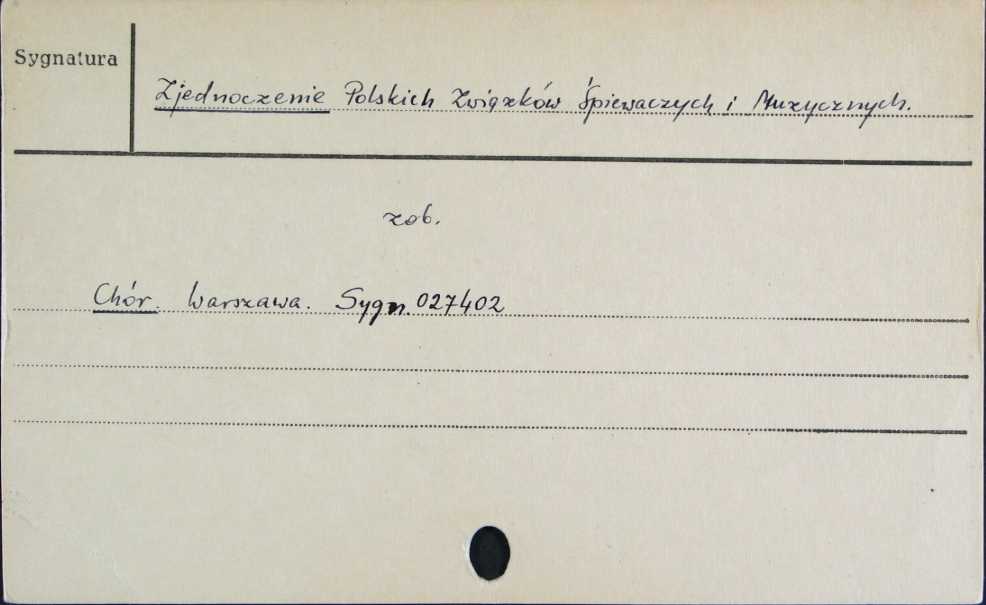 Sygnatura
Zjednoczenie Polskich Związków Śpiewaczych i Muzycznych.
zob.
Chór. Warszawa. Sygn. 027402